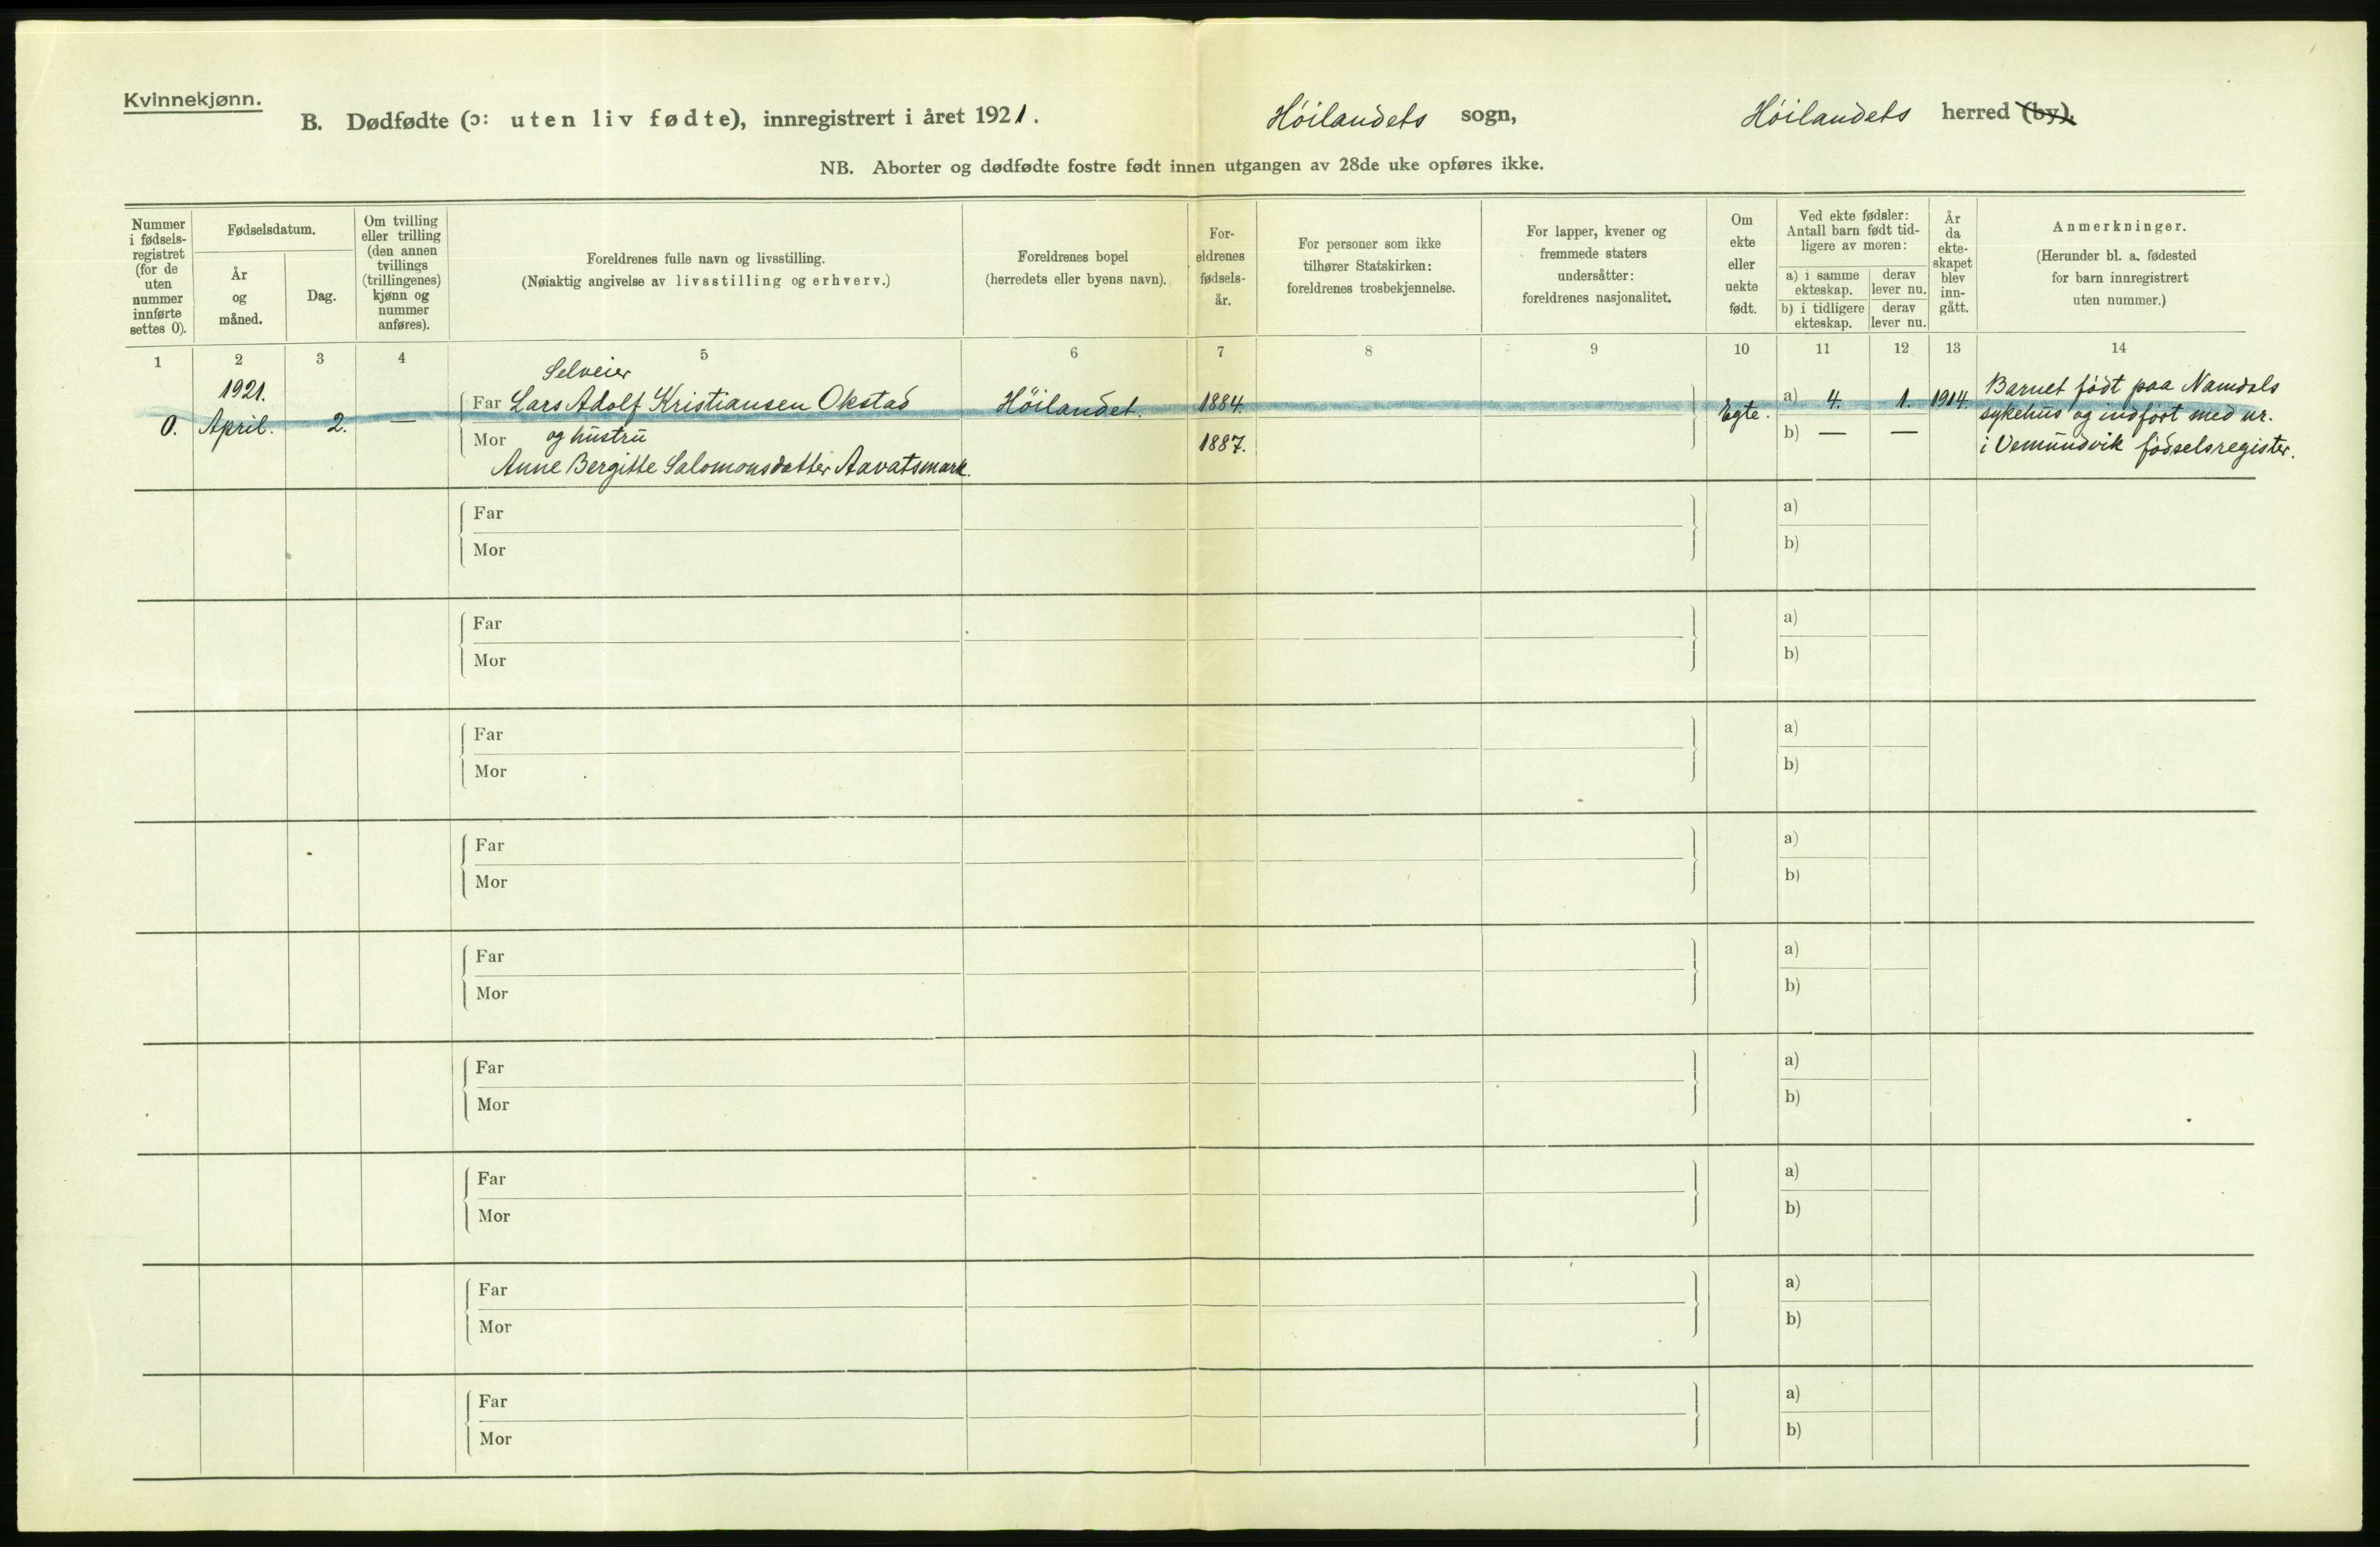 Kvinnekjønn.
B. Dødfødte (ɔ: uten liv fødte), innregistrert i året 1921. Höilandets sogn, Höilandets herred (by).
NB. Aborter og dødfødte fostre født innen utgangen av 28de uke opføres ikke.
Nummer
i fødsels-
registret
(for de
uten
nummer
innførte
settes 0).
Fødselsdatum.
År
og
måned.
Dag.
Om tvilling
eller trilling
(den annen
tvillings
(trillingenes)
kjønn og
nummer
anføres).
Foreldrenes fulle navn og livsstilling.
(Nøiaktig angivelse av livsstilling og erhverv.)
Foreldrenes bopel
(herredets eller byens navn).
For-
eldrenes
fødsels-
år.
For personer som ikke
tilhører Statskirken:
foreldrenes trosbekjennelse.
For lapper, kvener og
fremmede staters
undersåtter:
foreldrenes nasjonalitet.
Om
ekte
eller
uekte
født.
Ved ekte fødsler:
Antall barn født tid-
ligere av moren:
a) i samme
ekteskap.
derav
lever nu.
b) i tidligere
ekteskap.
derav
lever nu.
År
da
ekte-
skapet
blev
inn-
gått.
Anmerkninger.
(Herunder bl. a. fødested
for barn innregistrert
uten nummer.)
1 2 3 4 5 6 7 8 9 10 11 12 13 14
0.
1921.
April.
2.
—
Selveier
Far Lars Adolf Kristiansen Okstad
Mor og hustru
Anne Bergitte Salomonsdatter Aavatsmark.
Höilandet.
1884.
1887.
Egte.
a) 4. 1.
b) — —
1914.
Barnet födt paa Namdals
sykehus og indfört med nr.
i Vemundvik födselsregister.
Far a)
Mor b)
Far a)
Mor b)
Far a)
Mor b)
Far a)
Mor b)
Far a)
Mor b)
Far a)
Mor b)
Far a)
Mor b)
Far a)
Mor b)
Far a)
Mor b)